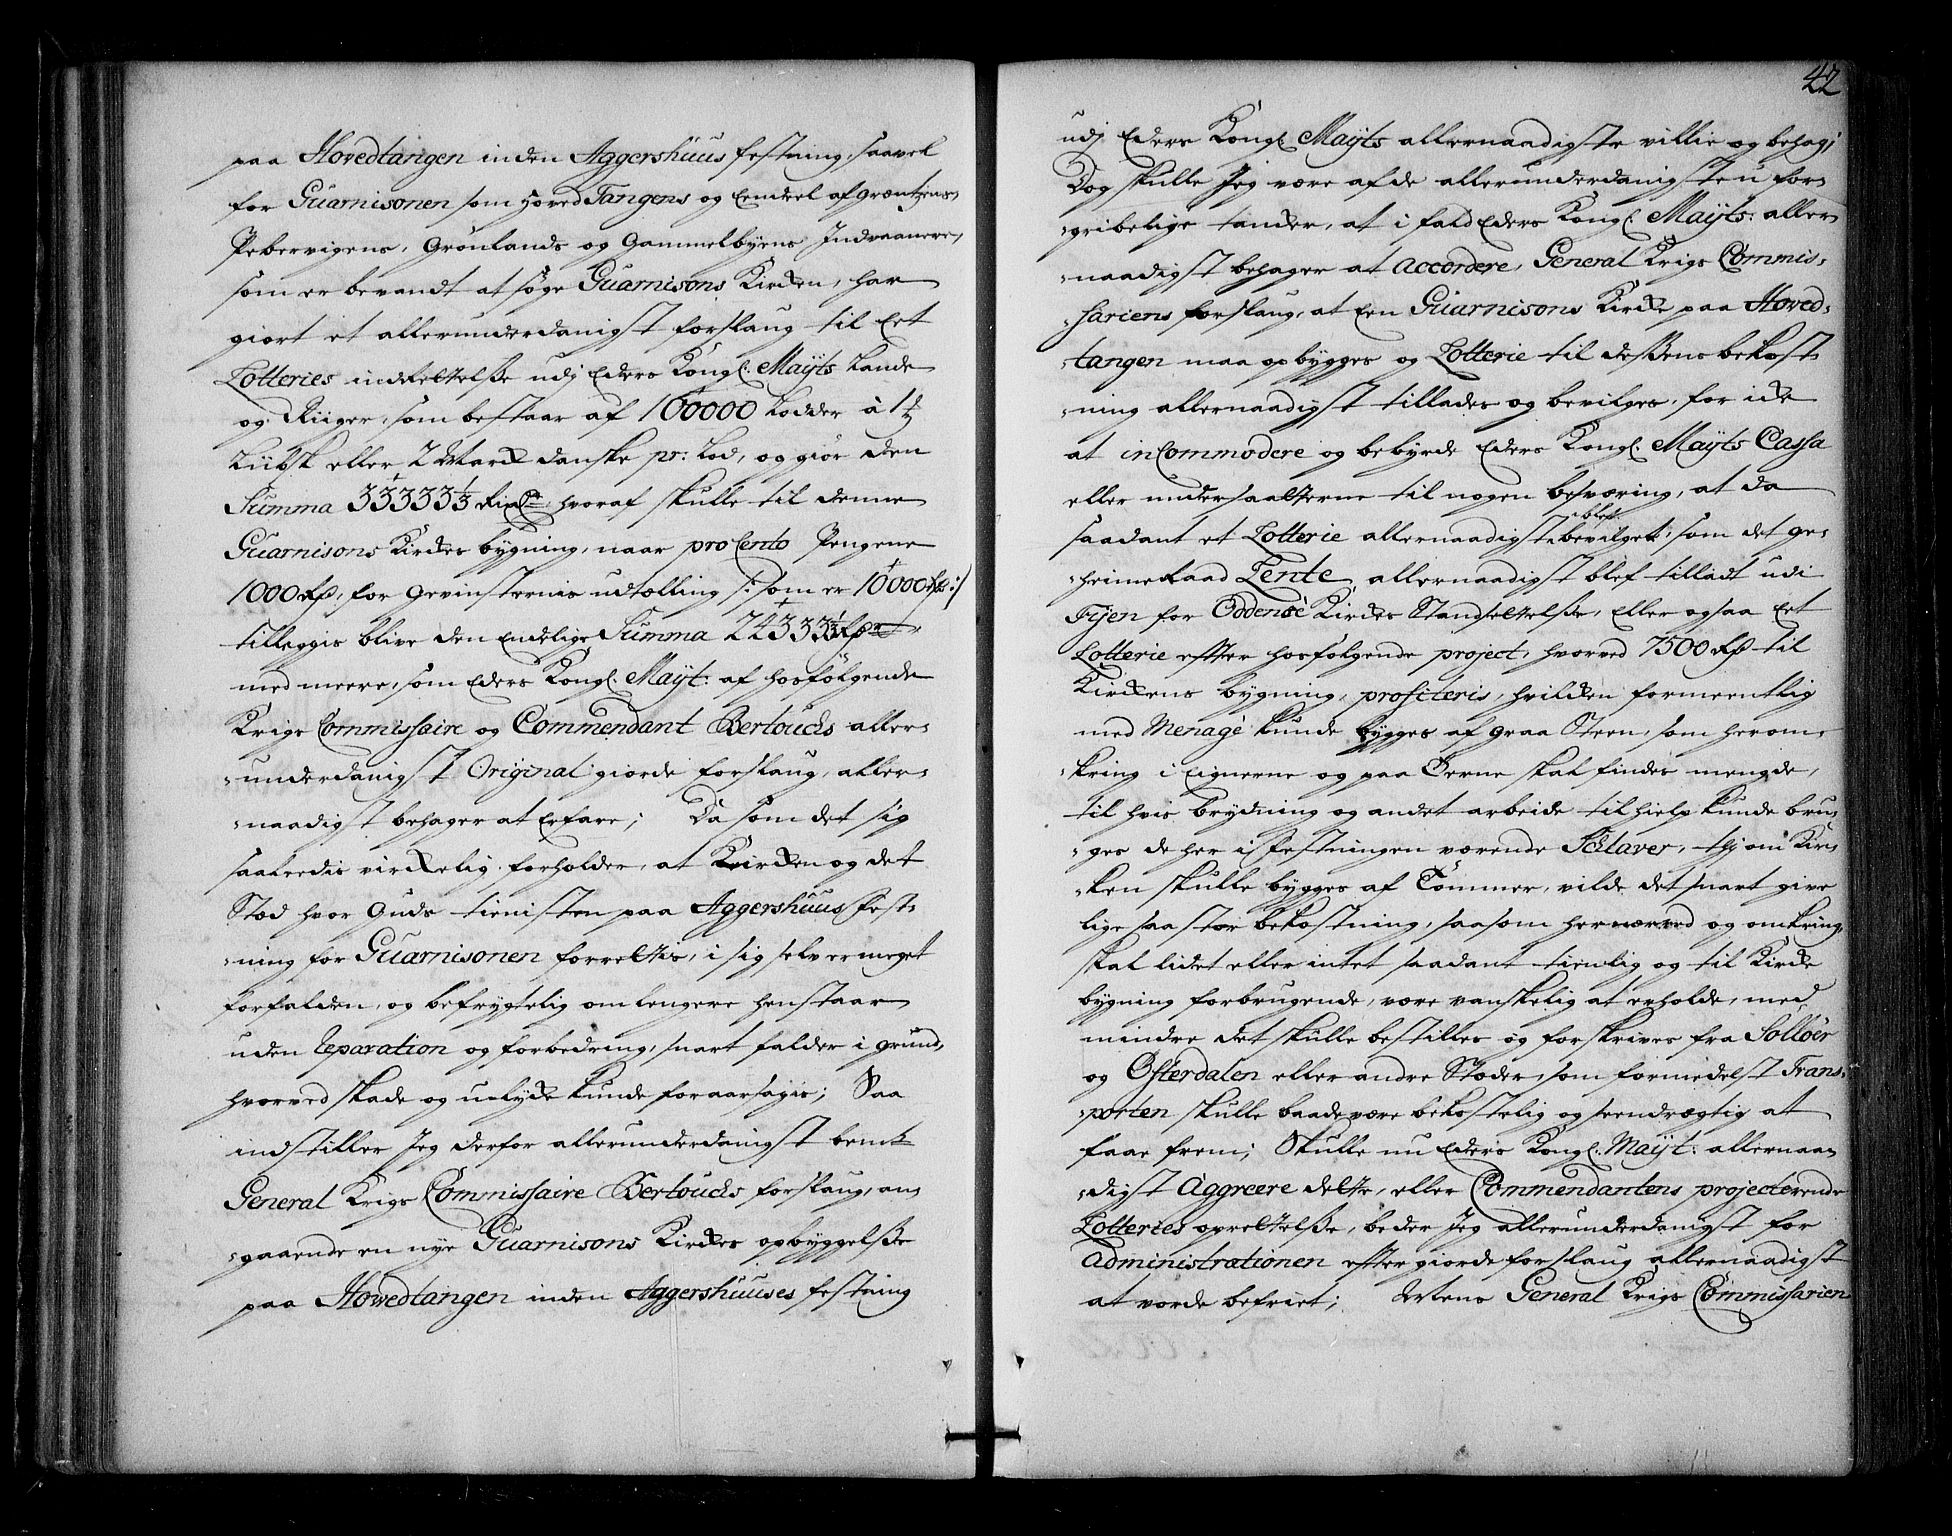 paa Hovedtangen inden Aggershuus festning, saavel
for Guarnisonen som Hoved Tangens og Eendeel af Grændtzens
Pebervigens, Grønlands og Gammelbyens Indvaanere,
som er bevandt at søge Guarnisons Kirken, har
giort et allerunderdanigst forslaug til Eet
Lotteries indrettelße udj Eders Kongl. Mayts Lande
og Riiger, som bestaar af 100000 Lodder à 1
Lübsk eller 2 Marck danske pr: Lod, og giør den
Summa 33333⅓ Rixdr, hvoraf skulle til denne
Guarnisons Kirkes bygning, naar pro Cento Pengene
1000 Rd, for Gevinsternis udtælling /: som er 10000 Rd :/
tilleggis blive den Endelige Summa 22333⅓ Rdr
med meere, som Eders Kongl. Mayt: af hosfölgende
Krigs Commissaire og Commendant Bertouchs aller-
-underdanigst Original giorde forslaug, aller-
-naadigst behager at Erfare; Da som det sig
saaleedis virkelig forholder, at Kirken og det
Stæd hvor Guds tienisten paa Aggershuus fest-
-ning for Guarnisonen forrettis, i sig selv er meget
forfalden, og befrygtelig om lengere henstaar
uden Reparation og forbedring, snart falder i grund,
hvorved skade og ulycke kunde foraarsagis; Saa
indstiller Jeg derfor allerunderdanigst bemte
General Krigs Commissaire Bertouchs forslaug, an-
-gaaende en nye Guarnisons Kirkes opbyggelße
paa Hovedtangen inden Aggershuuses festning
42
udj Eders Kongl. Mayts allernaadigste villie og behag;
Dog skulle Jeg være af de allerunderdanigste u for-
-gribelige tanker, at i fald Eders Kongl. Mayts: aller
-naadigst behager at Accordere, General Krigs Commis-
-sariens forslaug, at Een Guarnisons Kirke paa Hoved-
-tangen maa opbygges og Lotterie til deßens bekost-
-ning allernaadigst tillades og bevilges, for icke
at inCommodere og bebyrde Eders Kongl. Mayts Cassa
eller undersaatterne til nogen besværing, at da
saadant et Lotterie allernaadigst blef bevilget, som det Ge-
-heime Raad Lente allernaadigst blef tilladt udi
Fyen for Oddensè Kirkes Standsettelße, Eller ogsaa Eet
Lotterie efter hosfølgende project, hvorved 7500 Rd til
Kirkens bygning, profiteris, hvilken formeentlig
med Menage kunde bygges af graa Steen, som herom-
kring i Eignerne og paa Öerne skal findes mengde,
til hvis brydning og andet arbeide til hielp kunde bru-
-ges de her i festningen værende Sclaver, thj om Kir-
-ken skulle bygges af Tömmer, vilde det snart give
lige saa stor bekostning, saasom her nærved og omkring
skal lidet eller intet saadant tienlig og til Kirke
bygning forbrugende, være vanskelig at erholde, med
mindre det skulle bestilles og forskrives fra Solloer
og Østerdalen eller andre Stæder, som formedelst Trans-
-porten skulle baade være bekostelig og seendrægtig at
faae frem; Skulle nu Eders Kongl. Mayt: allernaa-
-digst Aggreere dette, eller Commendantens projecterende
Lotteries oprettelße, beder Jeg allerunderdanigst for
Administrationen efter giorde forslaug allernaadigst
at vorde befriet; Mens General Krigs Commissarien